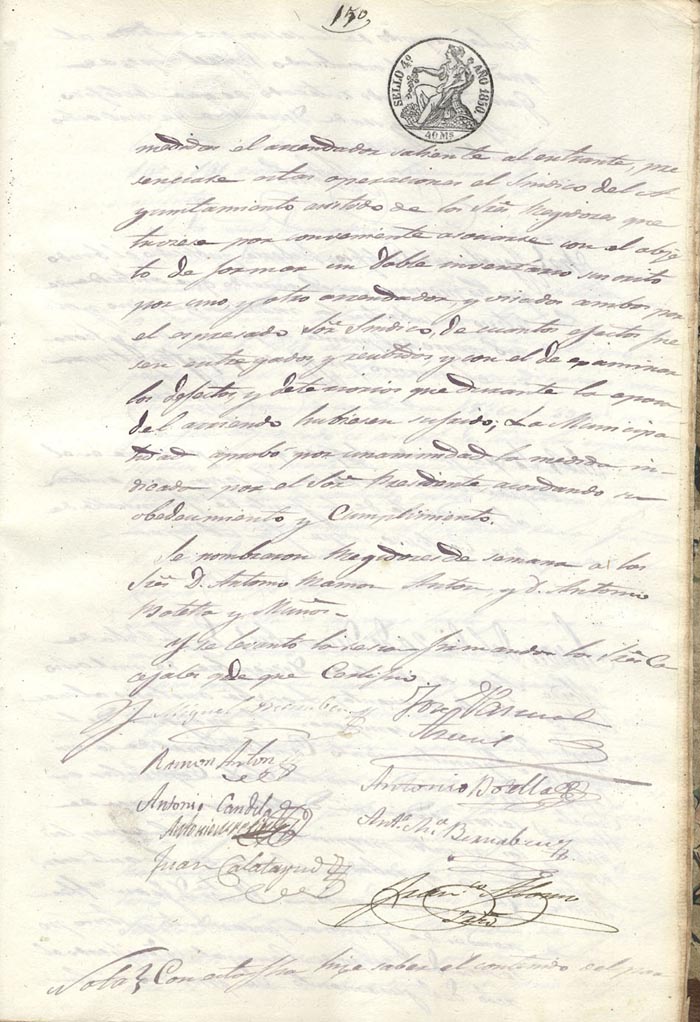 150
SELLO 4º AÑO 1850.
40 Ms
medidas el arrendador saliente al entrante, pre
senciase estas operaciones el Sindico del A
yuntamiento asistido de los Sres Regidores que
tuviese por conveniente asociarse con el obje
to de formar un doble inventario suscrito
por uno, y otro arrendador, y visados ambos por
el espresado Sor Sindico, de cuantos efectos fue
sen entregados y recibidos y con el de examinar
los defectos, y deteriorios que durante la epoca
del arriendo hubiesen sufrido; La Municipa
lidad aprobó por unanimidad la medida in
dicada por el Sor Presidente, acordando su
obedecimiento y Cumplimiento.
Se nombraron Regidores de semana a los
Sres D. Antonio Ramon Anton, y D. Antonio
Botella y Muñoz.
Y se levantó la sesion firmando los Sres Con
cejales de que Certifico.
Miguel
José Pascual
Ramon Anton
Antonio Botella
Antonio Candela
Anto Ma Bernabeu
Antonio
Juan Calatayud
Franco Alfaro
Srio
Nota} Con esta fha hize saber el contenido del